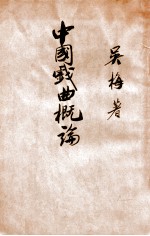 吳梅著
中國戲曲概論